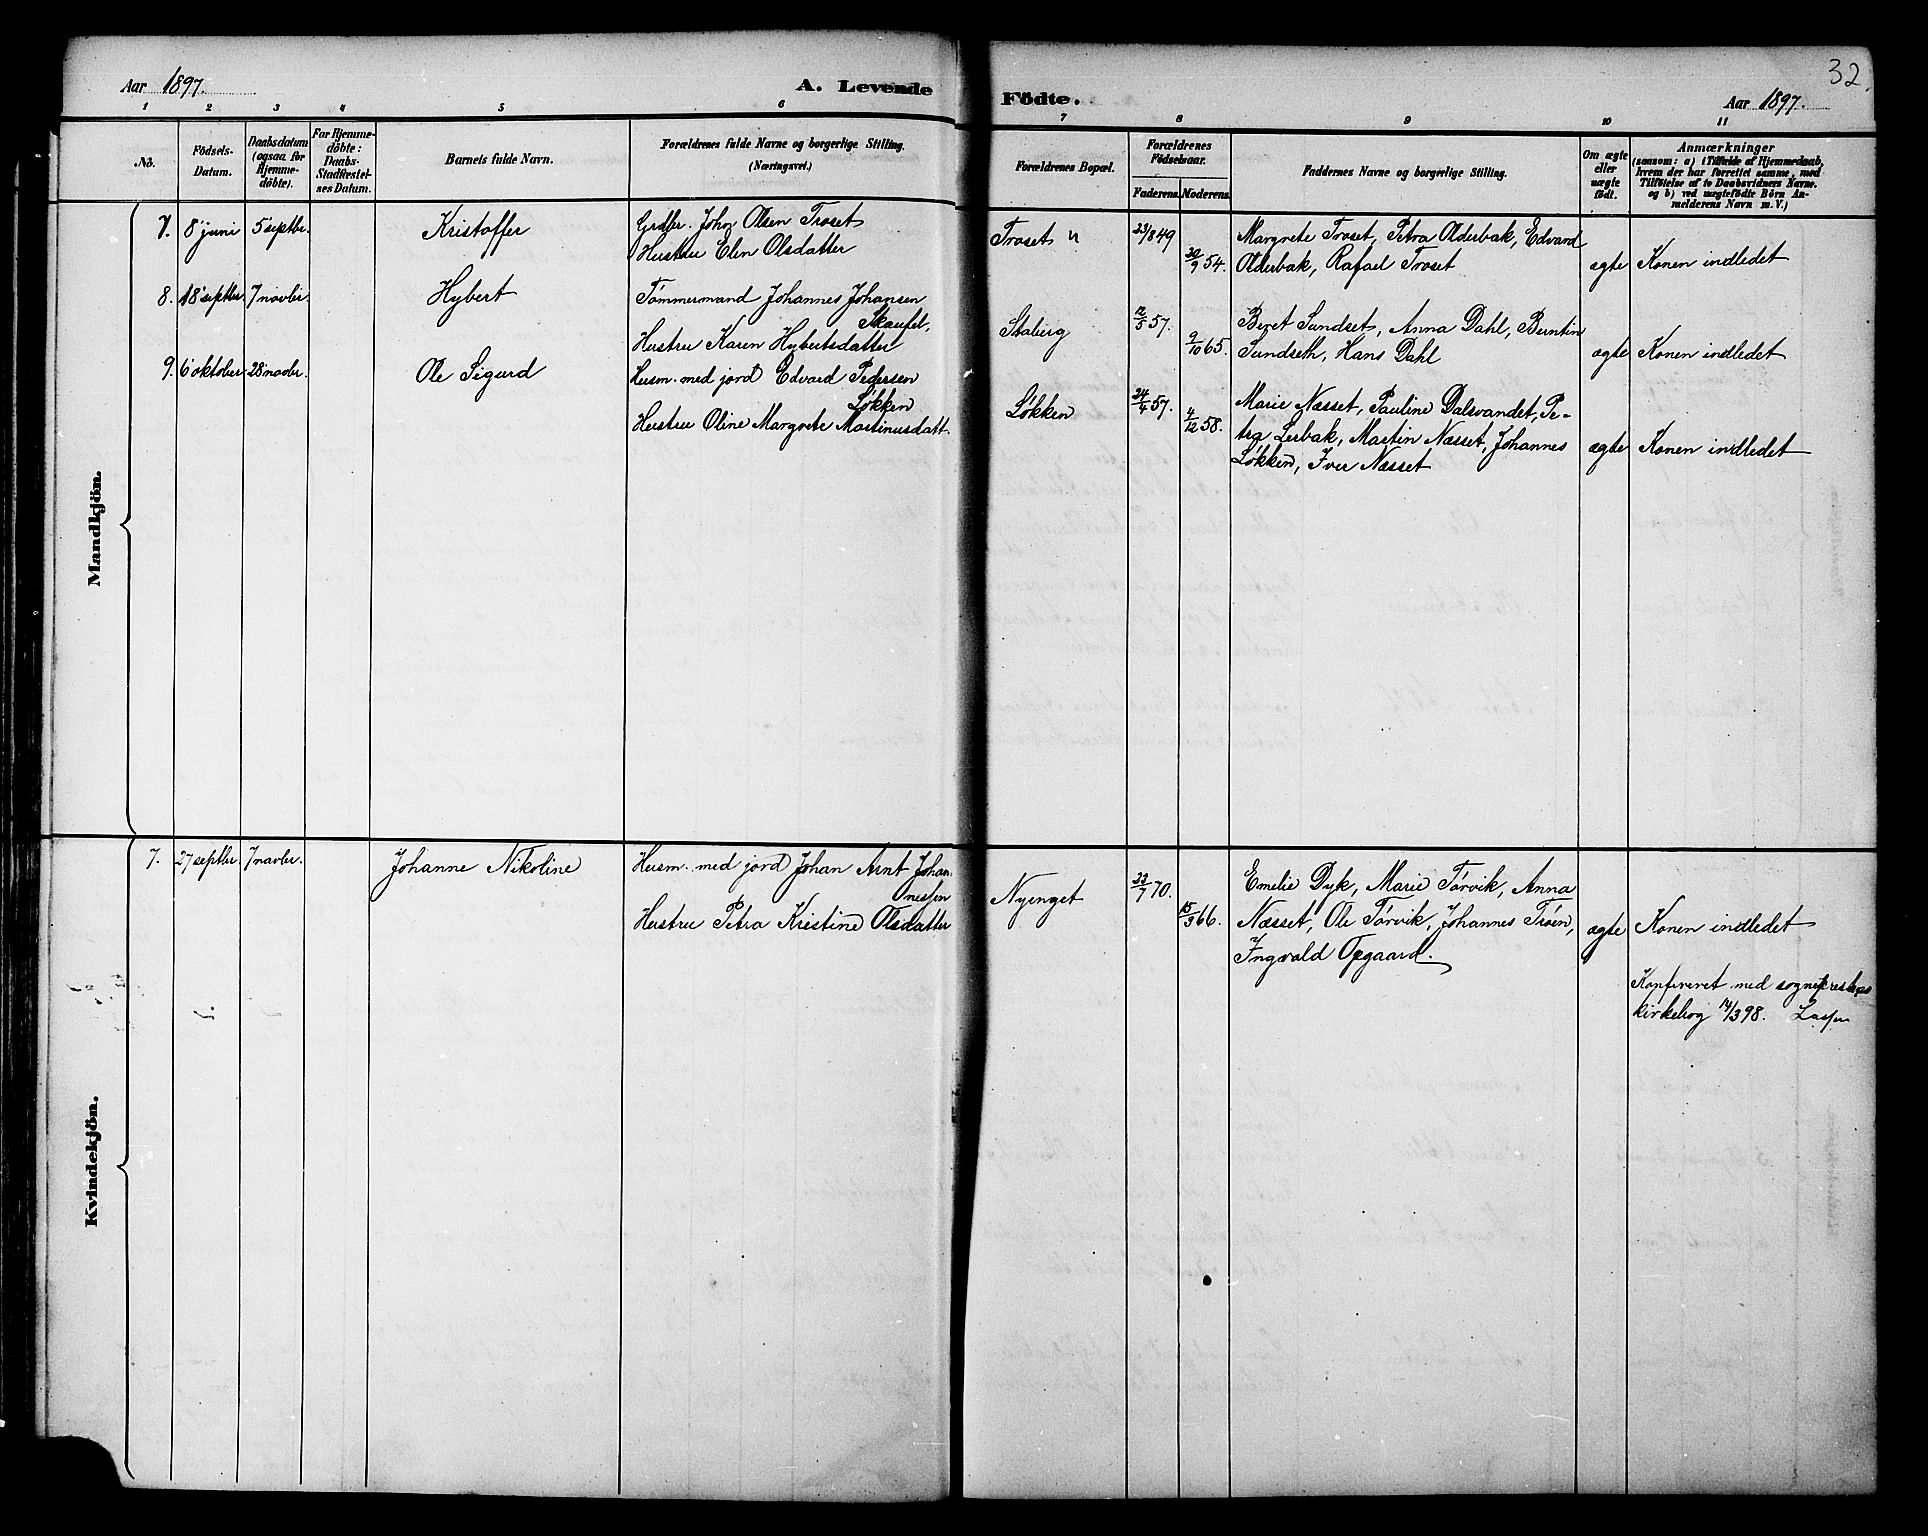 32.
Aar 1897.
A. Levende Födte.
Aar 1897.
1 2 3 4 5 6 7 8 9 10 11
No.
Födsels-
Datum.
Daabsdatum
(ogsaa for
Hjemme-
döbte).
For Hjemme-
döbte:
Daabs-
Stadfæstel-
ses Datum.
Barnets fulde Navn.
Forældrenes fulde Navne og borgerlige Stilling.
(Næringsvei.)
Forældrenes Bopæl.
Forældrenes
Födselsaar.
Faderens. Moderens.
Faddernes Navne og borgerlige Stilling.
Om ægte
eller
uægte
födt.
Anmærkninger
(saasom: a) i Tilfælde af Hjemmedaab,
hvem der har forrettet samme, med
Tilföielse af to Daabsvidners Navne.
og b) ved uægtefödte Börn An-
melderens Navn m. V.)
Mandkjön.
7. 8' juni 5' septbr. Kristoffer
Grdbr. Johan Olsen Troset
Hustru Elen Olsdatter
Troset
23/8 49
20/9 54.
Margrete Troset, Petra Olderbak, Edvard
Olderbak, Rafael Troset
ægte Konen indledet
8. 18' septbr. 7' novbr. Hybert
Tömmermand Johannes Johansen
Skaufel,
Hustru Karen Hybertsdatter
Staberg
12/5 57.
9/10 65.
Beret Sundset, Anna Dahl, Berntin
Sundseth, Hans Dahl
ægte Konen indledet
9. 6' oktober 28' novbr. Ole Sigurd
Husm. med jord Edvard Pedersen
Løkken
Hustru Oline Margrete Martinusdatt.
Løkken
24/4 57.
4/12 58.
Marie Næsset, Pauline Dalsvandet, Pe-
tra Lerbak, Martin Næsset, Johannes
Løkken, Iver Næsset
ægte Konen indledet
Kvindekjön.
7. 27 septbr. 7 novbr. Johanne Nikoline
Husm. med jord Johan Arnt Johan
nessen
Hustru Petra Kristine Olsdatter
Nyenget
23/7 70.
15/3 66.
Emelie Dyk, Marie Tørvik, Anna
Næsset, Ole Tørvik, Johannes Trøen,
Ingvald Opgaard.
ægte Konen indledet
Konfereret med sogneprestens
kirkebog 14/3 98.